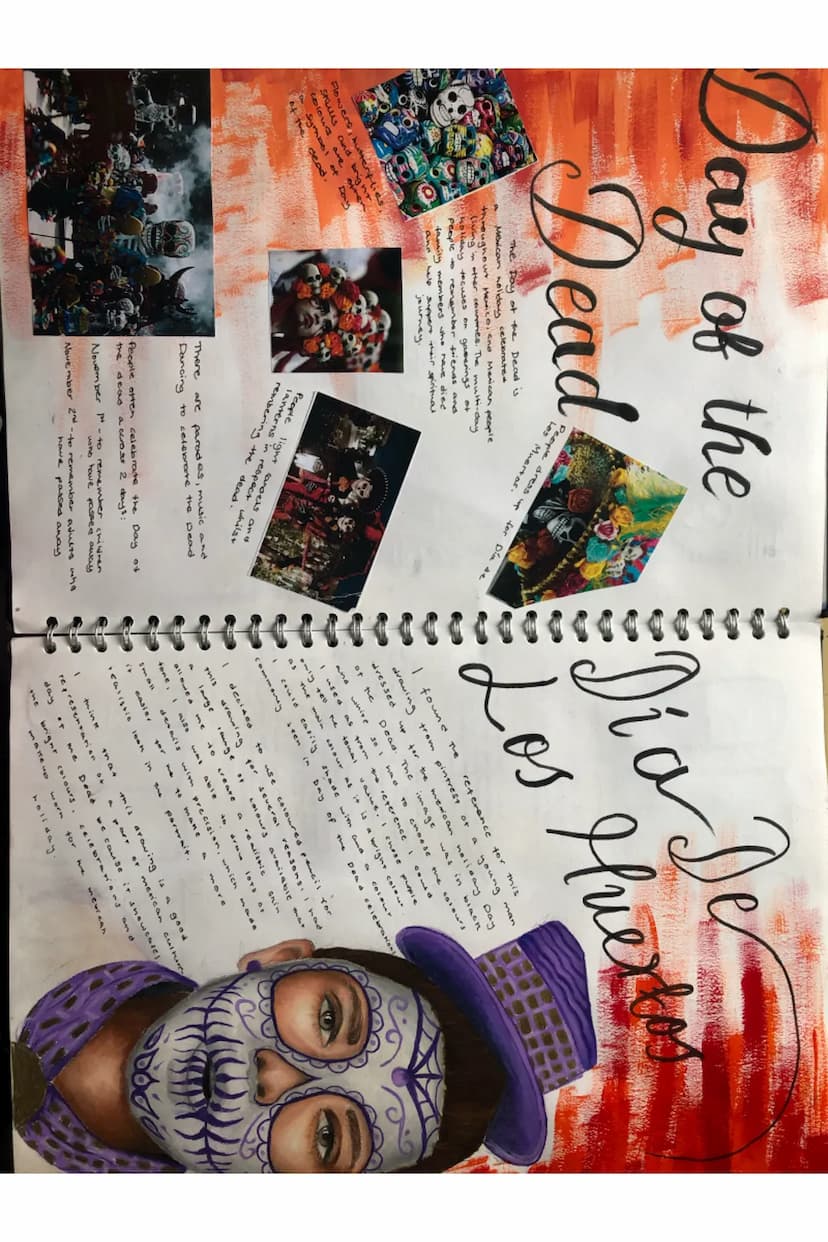 Day of the
Dead
Flowers, butterflies,
skulls and bright
colours are often
symbol of Day
of the Dead.
The Day of the Dead is
a Mexican holiday celebrated
throughout Mexico, and Mexican people
living in other countries. The multi-day
holiday focuses on gatherings of
people to remember friends and
family members who have died
and help support their spiritual
journey.
People dress up for Día de
los Muertos.
People light candles and
lanterns in respect whilst
the dead.
There are parades, music and
Dancing to celebrate the Dead
People often celebrate the Day of
the dead across 2 days:
November 1st - to remember children
who have passed away
November 2nd - to remember adults who
have passed away
Día De
Los Muertos
I found the reference for this
drawing from pinterest of a young man
dressed up for the mexican holiday Day
of the Dead. The image was in black
and white so I had to choose the colours
I used as from the reference I could
only see the tonal values. I chose purple
as the main colour as it is a bright colour
I could easily shade with and a colour
commonly seen in Day of the Dead celebrations
I decided to use coloured pencil for
this drawing for several reasons: I had
a large range of colours available that
allowed me to create a realistic skin
tone; I also was able to draw lots of
small details with precision, which made
it easier for me to make a more
realistic look in the portrait.
I think that this drawing is a good
representation of a part of mexican culture
day of the Dead because it showcases
the bright colours, celebrations and
makeup worn for the mexican
holiday